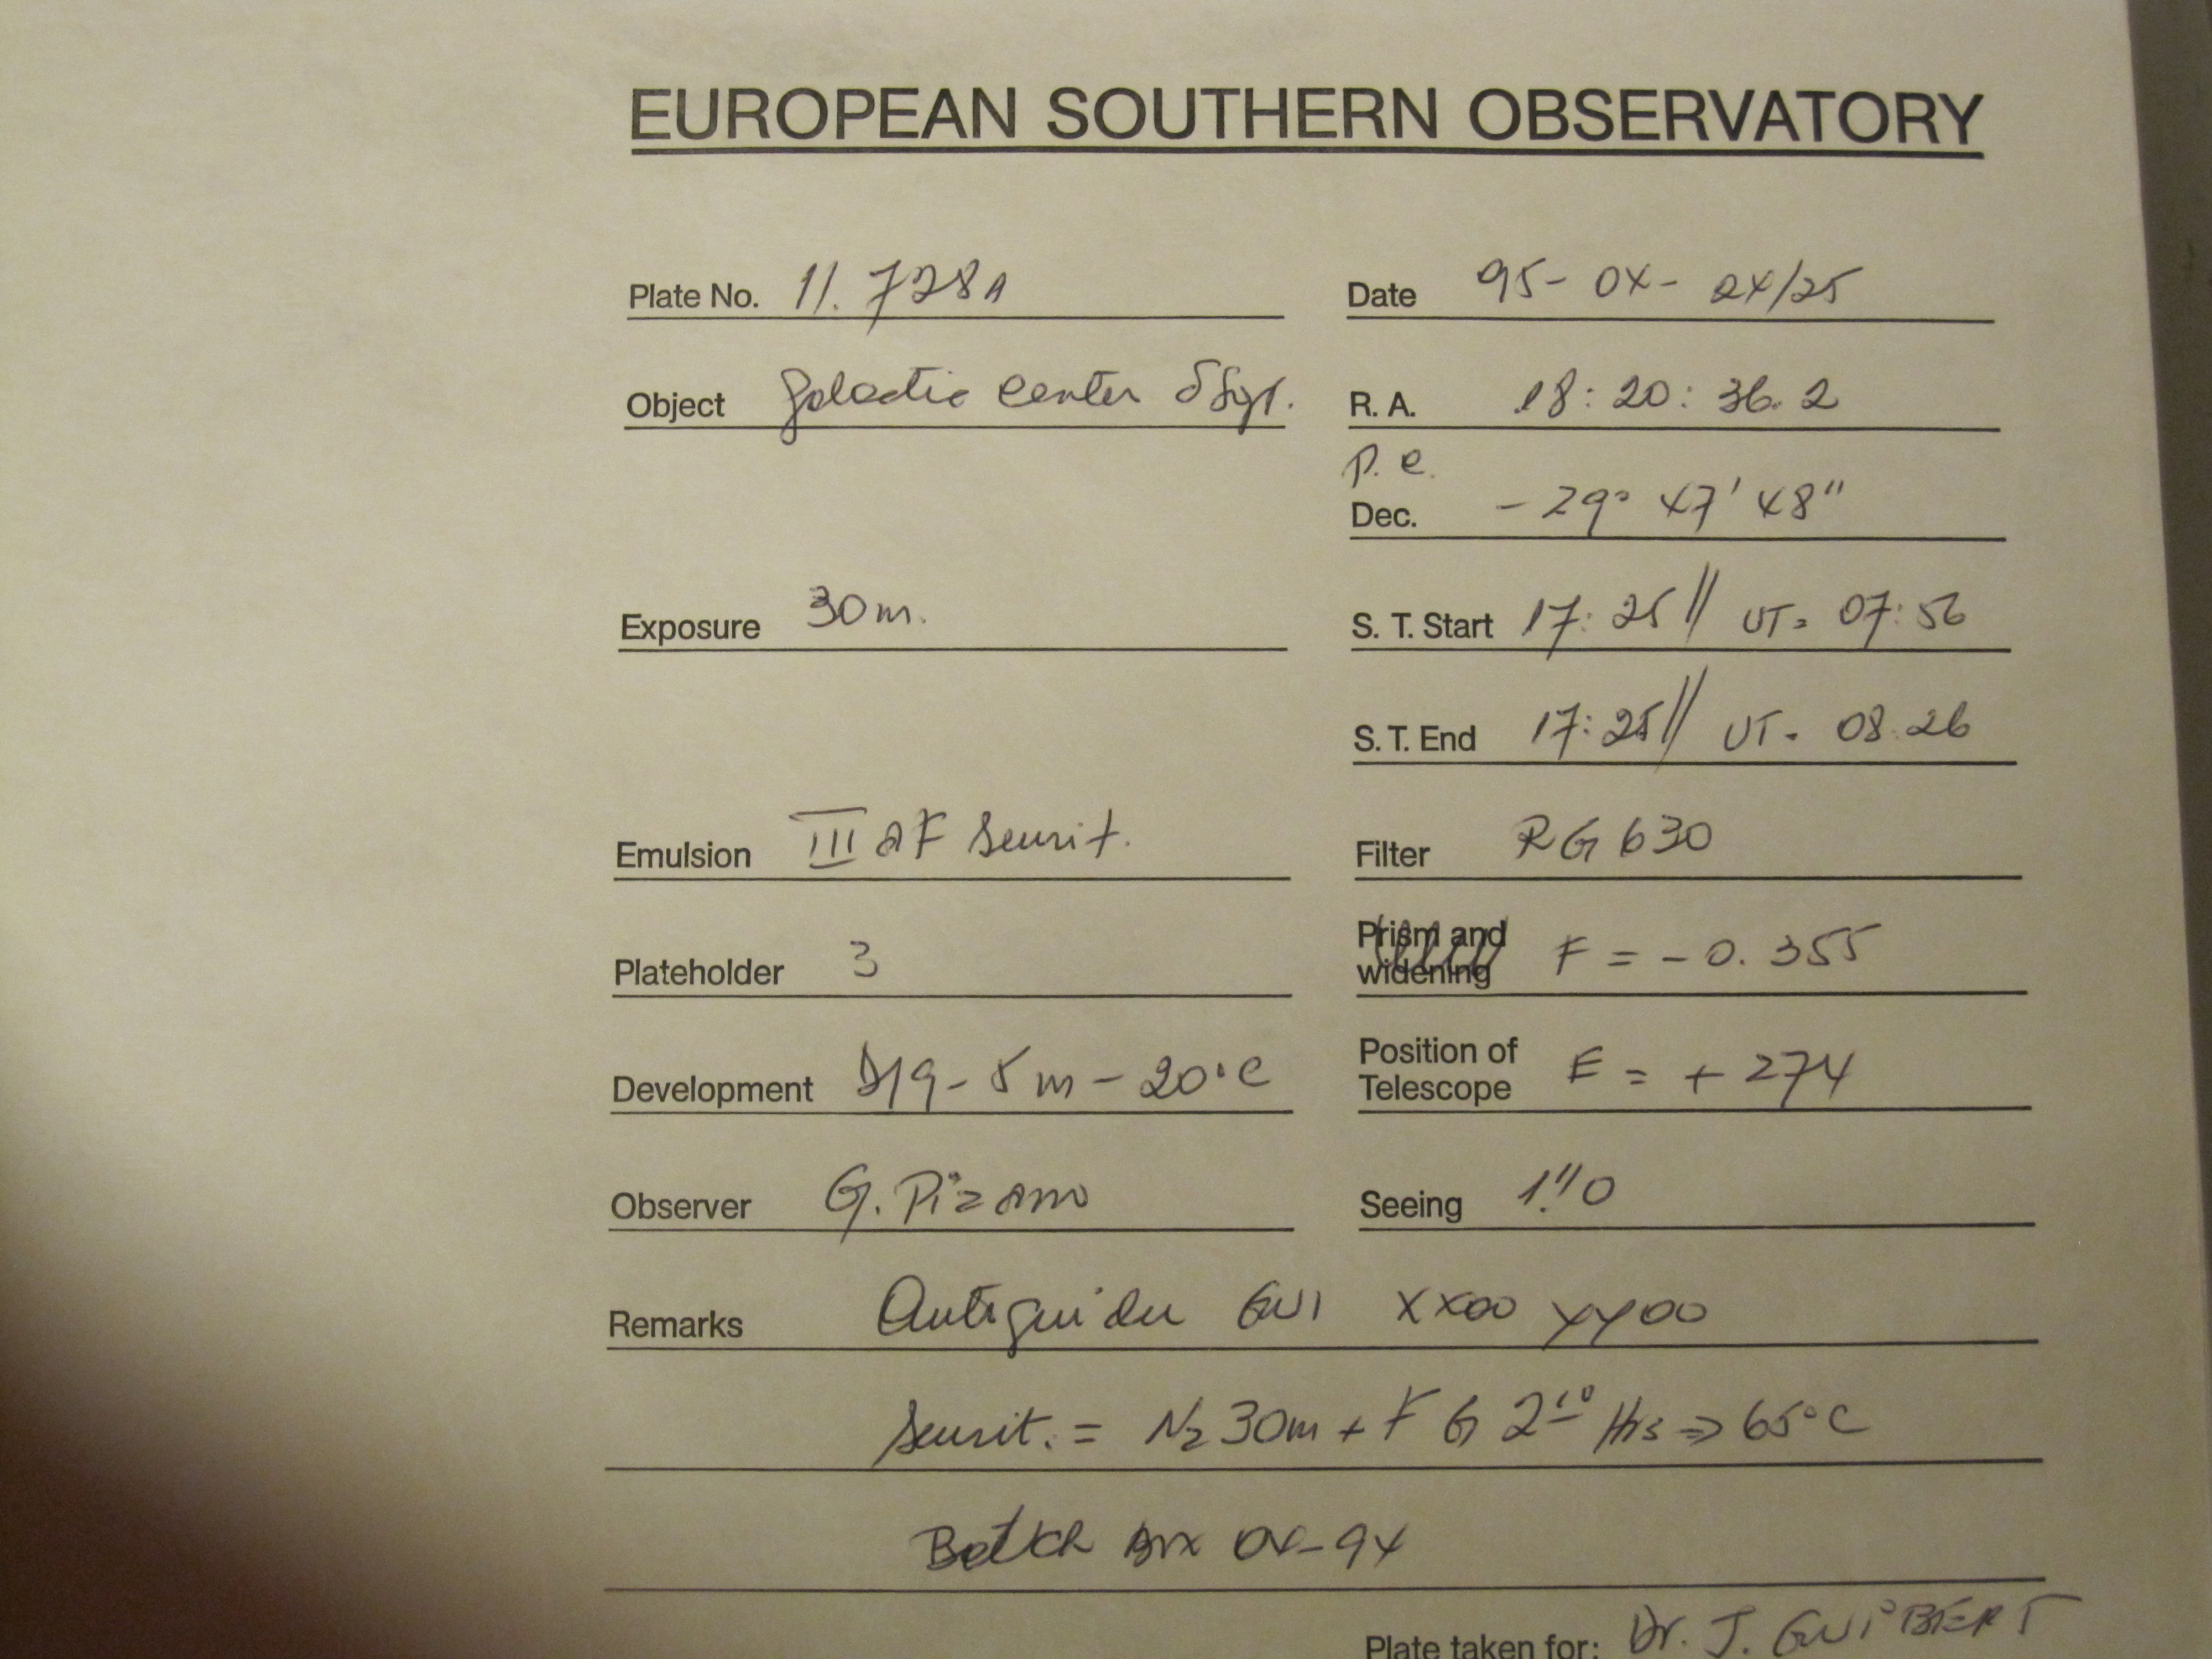 EUROPEAN SOUTHERN OBSERVATORY
Plate No. 11.728A
Date 95-04-24/25
Object Galactic Center δ Sgr.
R. A. 18:20:36.2
p. e.
Dec. -29° 47' 48"
Exposure 30m.
S. T. Start 17:25 // UT= 07:56
S. T. End 17:25 // UT= 08.26
Emulsion III aF Sensit.
Filter RG 630
Plateholder 3
Prism and widening F = -0.355
Development D19 - 5m - 20°C
Position of Telescope E = + 274
Observer G. Pizarro
Seeing 1."0
Remarks Autoguider GUI XX00 YY00
Sensit. = N2 30m + F G 2 10 Hrs => 65°C
Batch 04-94
Plate taken for: Dr. J. GUIBERT